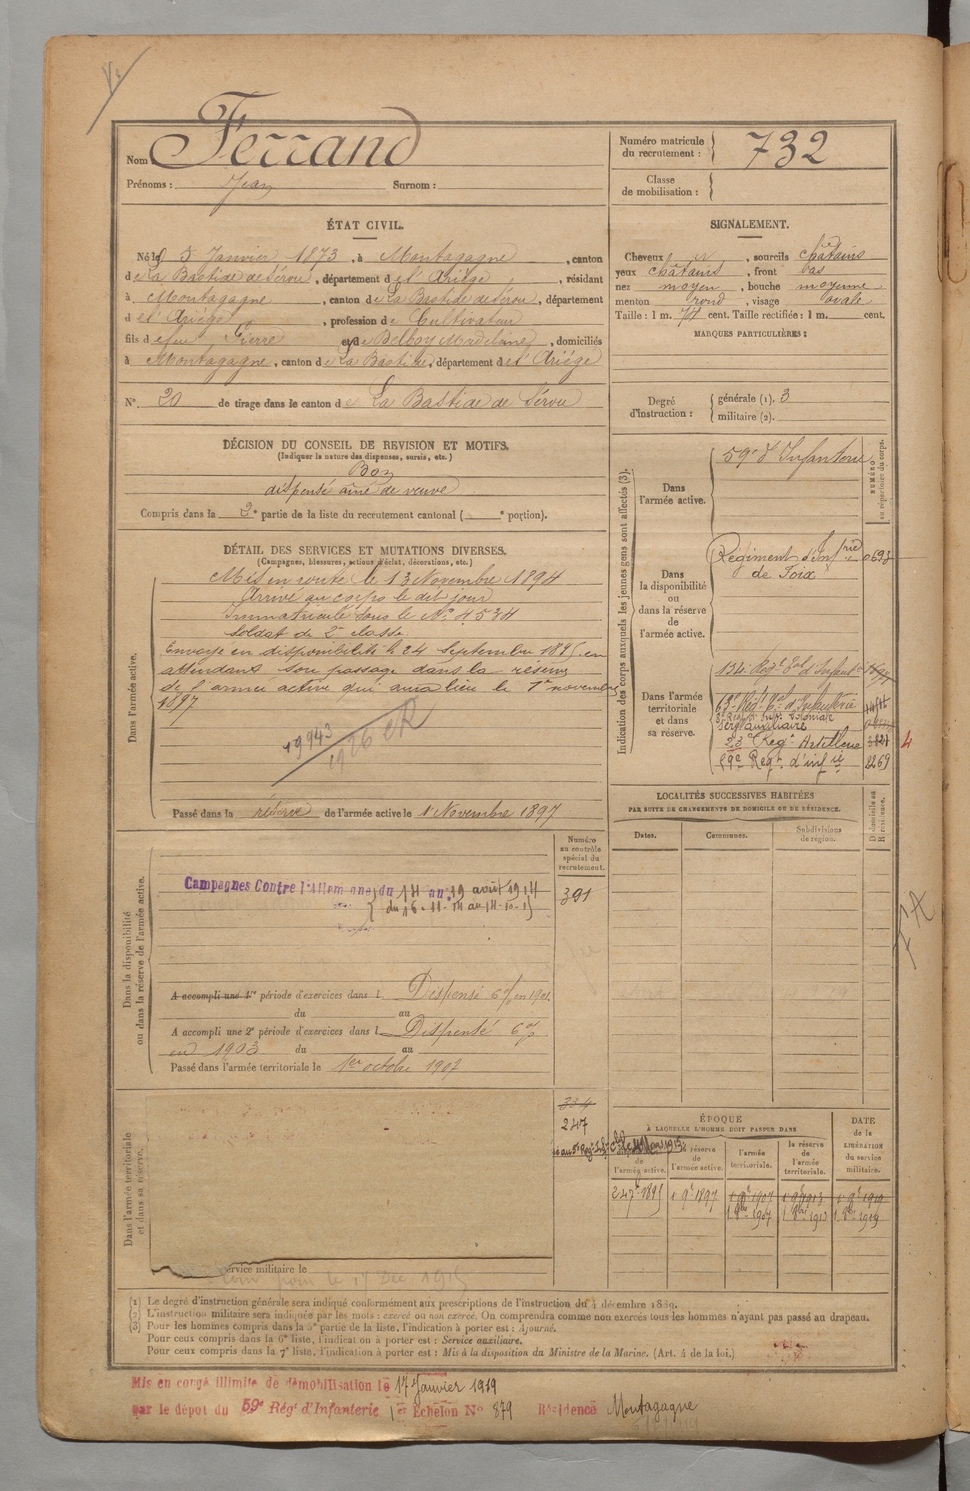 Nom Ferrand
Prénoms : Jean Surnom :
Numéro matricule
du recrutement : 732
Classe
de mobilisation :
ÉTAT CIVIL.
Né le 5 Janvier 1873, à Montagagne, canton
de La Bastide de Sérou, département de l'Ariège, résidant
à Montagagne, canton de La Bastide de Sérou, département
de l'Ariège, profession de Cultivateur
fils de feu Pierre et de , domiciliés
à Montagagne, canton de La Bastide, département de l'Ariège
N° 20 de tirage dans le canton de La Bastide de Sérou
SIGNALEMENT.
Cheveux , sourcils châtains
yeux châtains, front bas
nez moyen, bouche moyenne
menton rond, visage ovale
Taille : 1 m. 74 cent. Taille rectifiée : 1 m. cent.
MARQUES PARTICULIÈRES :
Degré
d'instruction :
générale (1). 3
militaire (2).
DÉCISION DU CONSEIL DE REVISION ET MOTIFS.
(Indiquer la nature des dispenses, sursis, etc.)
Bon
dispensé aîné de veuve
Compris dans la 2e partie de la liste du recrutement cantonal ( e portion).
DÉTAIL DES SERVICES ET MUTATIONS DIVERSES.
(Campagnes, blessures, actions d'éclat, décorations, etc.)
Dans l'armée active.
Mis en route le 13 Novembre 1894
Arrivé au corps le dit jour
Immatriculé sous le N° 4534
Soldat de 2e classe
Envoyé en disponibilité le 24 Septembre 1895 en
attendant son passage dans la réserve
de l'armée active qui aura lieu le 1er novembre
1897
19943
Passé dans la réserve de l'armée active le 1 Novembre 1897
Indication des corps auxquels les jeunes gens sont affectés (3).
NUMÉRO
au répertoire du corps.
Dans
l'armée active.
59e d'Infanterie
Dans
la disponibilité
ou
dans la réserve de
l'armée active.
Régiment d'Infrie
de Foix
Dans l'armée
territoriale
et dans
sa réserve.
134e Régt
63e Régt d'Infanterie
auxiliaire
23e Regt Artillerie
59e Regt d'infrie 2269
4
Dans la disponibilité
ou dans la réserve de l'armée active.
Numéro
au contrôle
spécial du
recrutement.
391
Campagnes Contre l'Allemagne du 14 au 19 août 1914
A accompli une 1re période d'exercices dans l Dispensé en 1901.
du au
A accompli une 2e période d'exercices dans l Dispensé
en 1903 du au
Passé dans l'armée territoriale le 1er octobre 1907
LOCALITÉS SUCCESSIVES HABITÉES
PAR SUITE DE CHANGEMENTS DE DOMICILE OU DE RÉSIDENCE.
Dates.
Communes.
Subdivisions
de région.
D domicile ou
R résidence.
Dans l'armée territoriale
et dans sa réserve.
247
service militaire le
ÉPOQUE
À LAQUELLE L'HOMME DOIT PASSER DANS
DATE
de la
LIBÉRATION
du service
militaire.
de
l'armée active.
la réserve
de
l'armée active.
l'armée
territoriale.
la réserve
de
l'armée
territoriale.
1897
1907
(1) Le degré d'instruction générale sera indiqué conformément aux prescriptions de l'instruction du 4 décembre 1889.
(2) L'instruction militaire sera indiquée par les mots : exercé ou non exercé. On comprendra comme non exercés tous les hommes n'ayant pas passé au drapeau.
(3) Pour les hommes compris dans la 5e partie de la liste, l'indication à porter est : Ajourné.
Pour ceux compris dans la 6e liste, l'indication à porter est : Service auxiliaire.
Pour ceux compris dans la 7e liste, l'indication à porter est : Mis à la disposition du Ministre de la Marine. (Art. 4 de la loi.)
Mis en congé illimité de démobilisation le 17 Janvier 1919
par le dépôt du 59e Régt d'Infanterie 1er Echelon N° 879 Résidence Montagagne